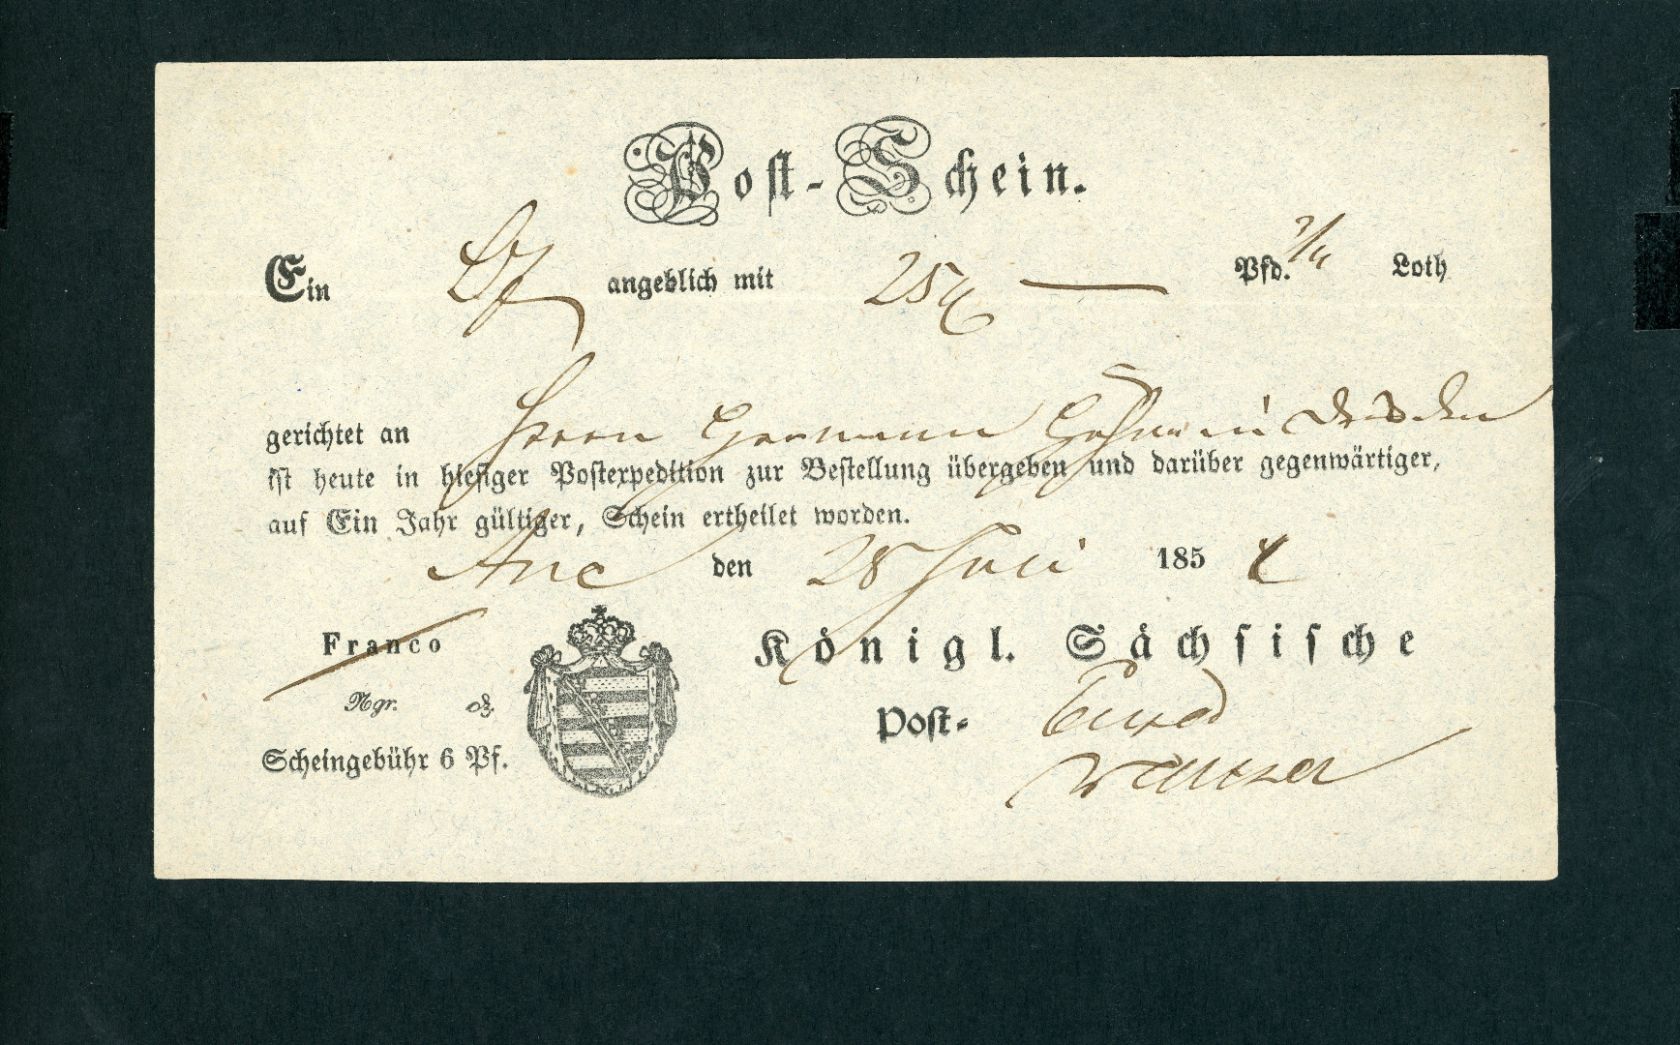 Post-Schein.
Ein angeblich mit 25 Pfd. Loth
gerichtet an Herrn Hermann in Dresden
ist heute in hiesiger Postexpedition zur Bestellung übergeben und darüber gegenwärtiger,
auf Ein Jahr gültiger, Schein ertheilet worden.
Aue den 28 Juli 185
Franco
Königl. Sächsische
Ngr. ₰.
Post-
Scheingebühr 6 Pf.